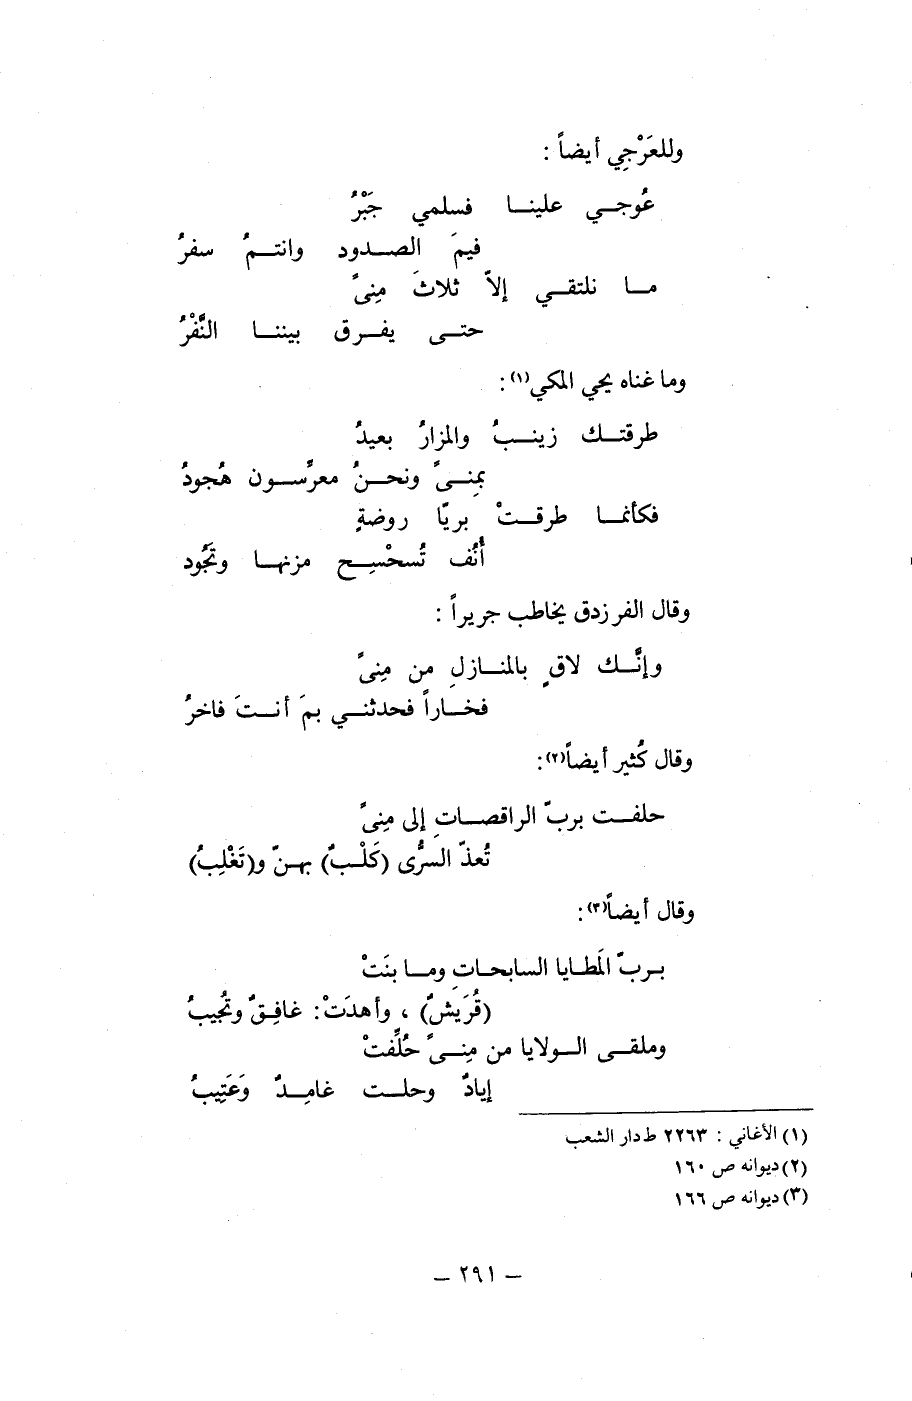 وللعَرْجِي أيضاً :
عُوجي علينا فسلمي جَبْرُ
فيمَ الصدود وانتمُ سفرُ
ما نلتقي إلاّ ثلاثَ مِنىً
حتى يفرق بيننا النَّفْرُ
وما غناه يحي المكي(١):
طرقتك زينبُ والمزارُ بعيدُ
بمنىً ونحنُ معرِّسون هُجودُ
فكأنما طرقتْ بريّا روضةٍ
أُنُف تُسحْسِح مزنها وتجُود
وقال الفرزدق يخاطب جريراً :
وإنَّك لاقٍ بالمنازلِ من مِنىً
فخاراً فحدثني بمَ أنتَ فاخرُ
وقال كُثير أيضاً(٢):
حلفت بربّ الراقصاتِ إلى مِنىً
تُعذّ السرُّى (كَلْبٌ) بهنّ و(تَغْلِبُ)
وقال أيضاً(٣):
بربّ المَطايا السابحاتِ وما بنَتْ
(قُرَيشٌ) ، وأهدَتْ: غافِقٌ وتُجيبُ
وملقى الولايا من مِنىً حُلِّفتْ
إيادٌ وحلت غامِدٌ وَعَتِيبُ
(١) الأغاني : ٢٢٦٣ ط دار الشعب
(٢) ديوانه ص ١٦٠
(٣) ديوانه ص ١٦٦
– ٢٩١ –